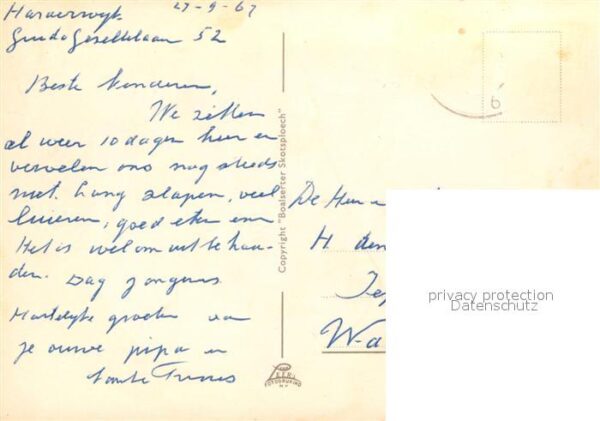 Harderwijk 27-9-67
Guido Gezellelaan 52
Beste kinderen,
We zitten
al weer 10 dagen hier en
vervelen ons nog steeds
niet. Lang slapen, veel
luieren, goed eten enz
Het is wel om uit te hou-
den. Dag jongens
Hartelijke groeten van
je ouwe pipa en
tante Truus
Copyright "Boalserter Skotsploech"
FOTODRUKIND
N.V.
b
De Heer
H. den
W-a
privacy protection
Datenschutz